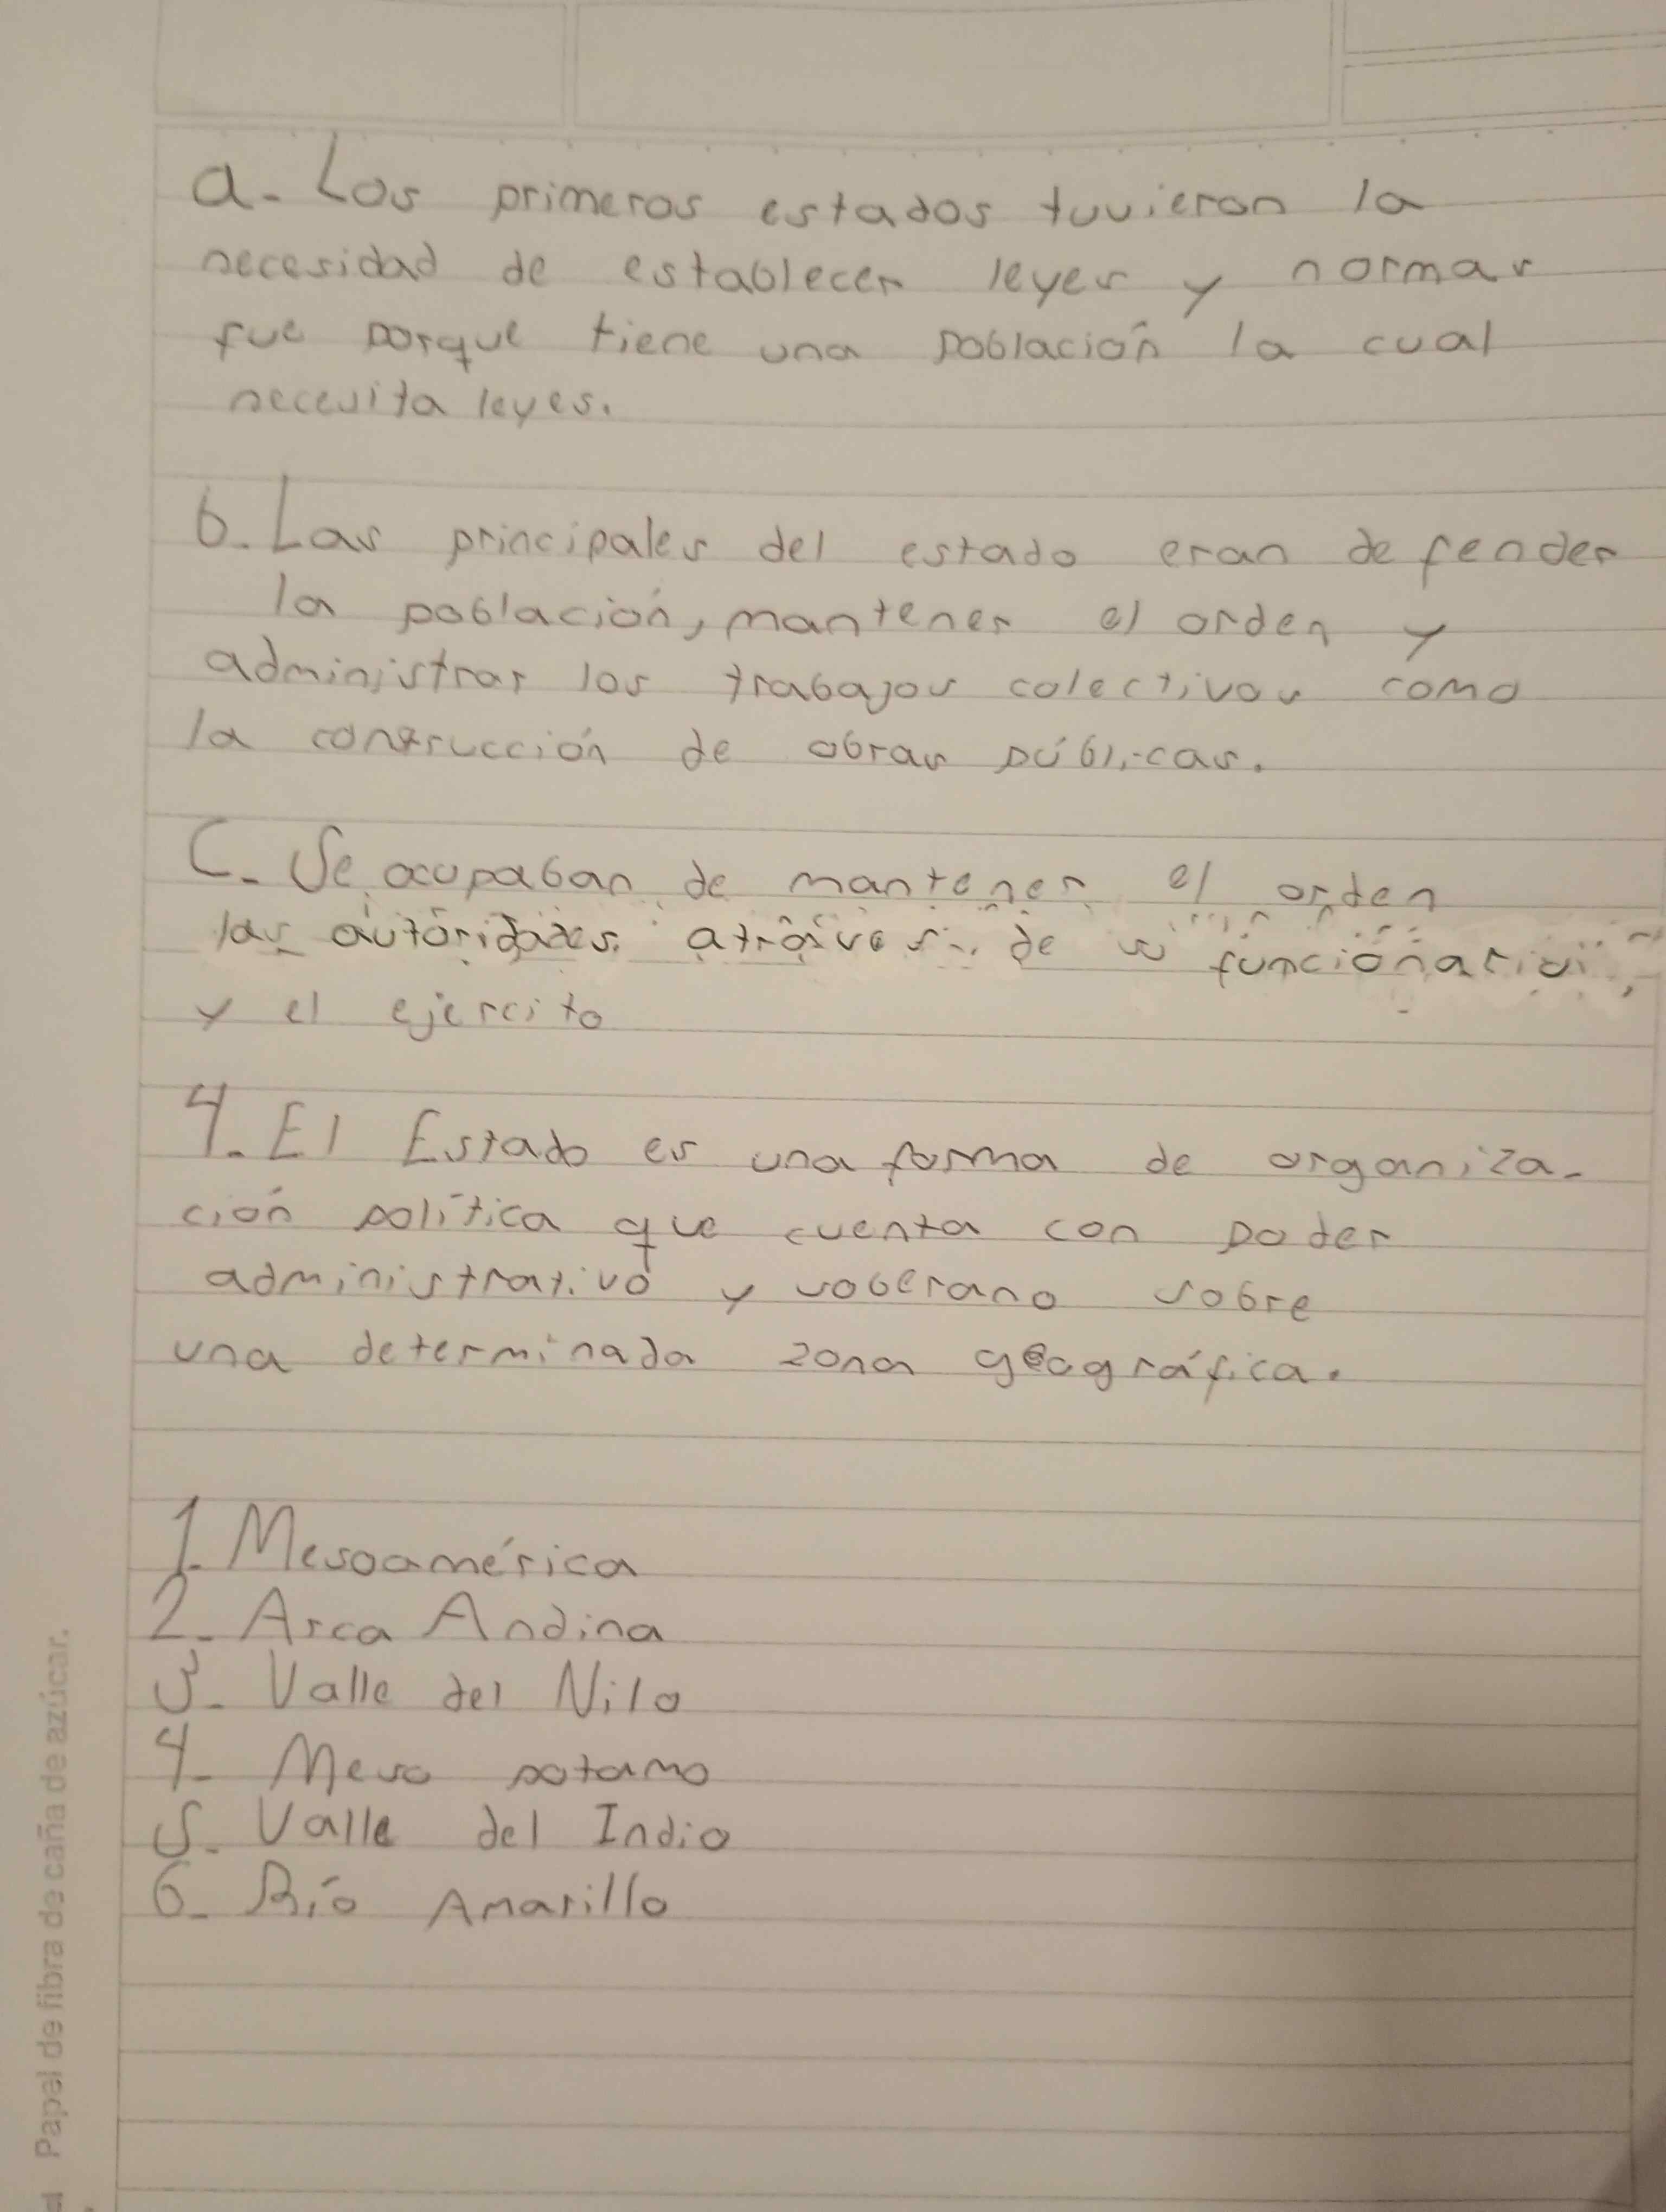 a. Los primeros estados tuvieron la
necesidad de establecer leyes y normas
fue porque tiene una población la cual
necesita leyes.
b. Las principales del estado eran defender
la población, mantener el orden y
administrar los trabajos colectivos como
la construcción de obras públi-cas.
C. Se ocupaban de mantener el orden
las autoridades. atraves de su funcionarios,
y el ejercito
4. El Estado es una forma de organiza-
ción política que cuenta con poder
administrativo y soberano sobre
una determinada zona geográfica.
1. Mesoamérica
2. Area Andina
3. Valle del Nilo
4. Meso potamo
5. Valle del Indio
6. Río Amarillo
Papel de fibra de caña de azúcar.